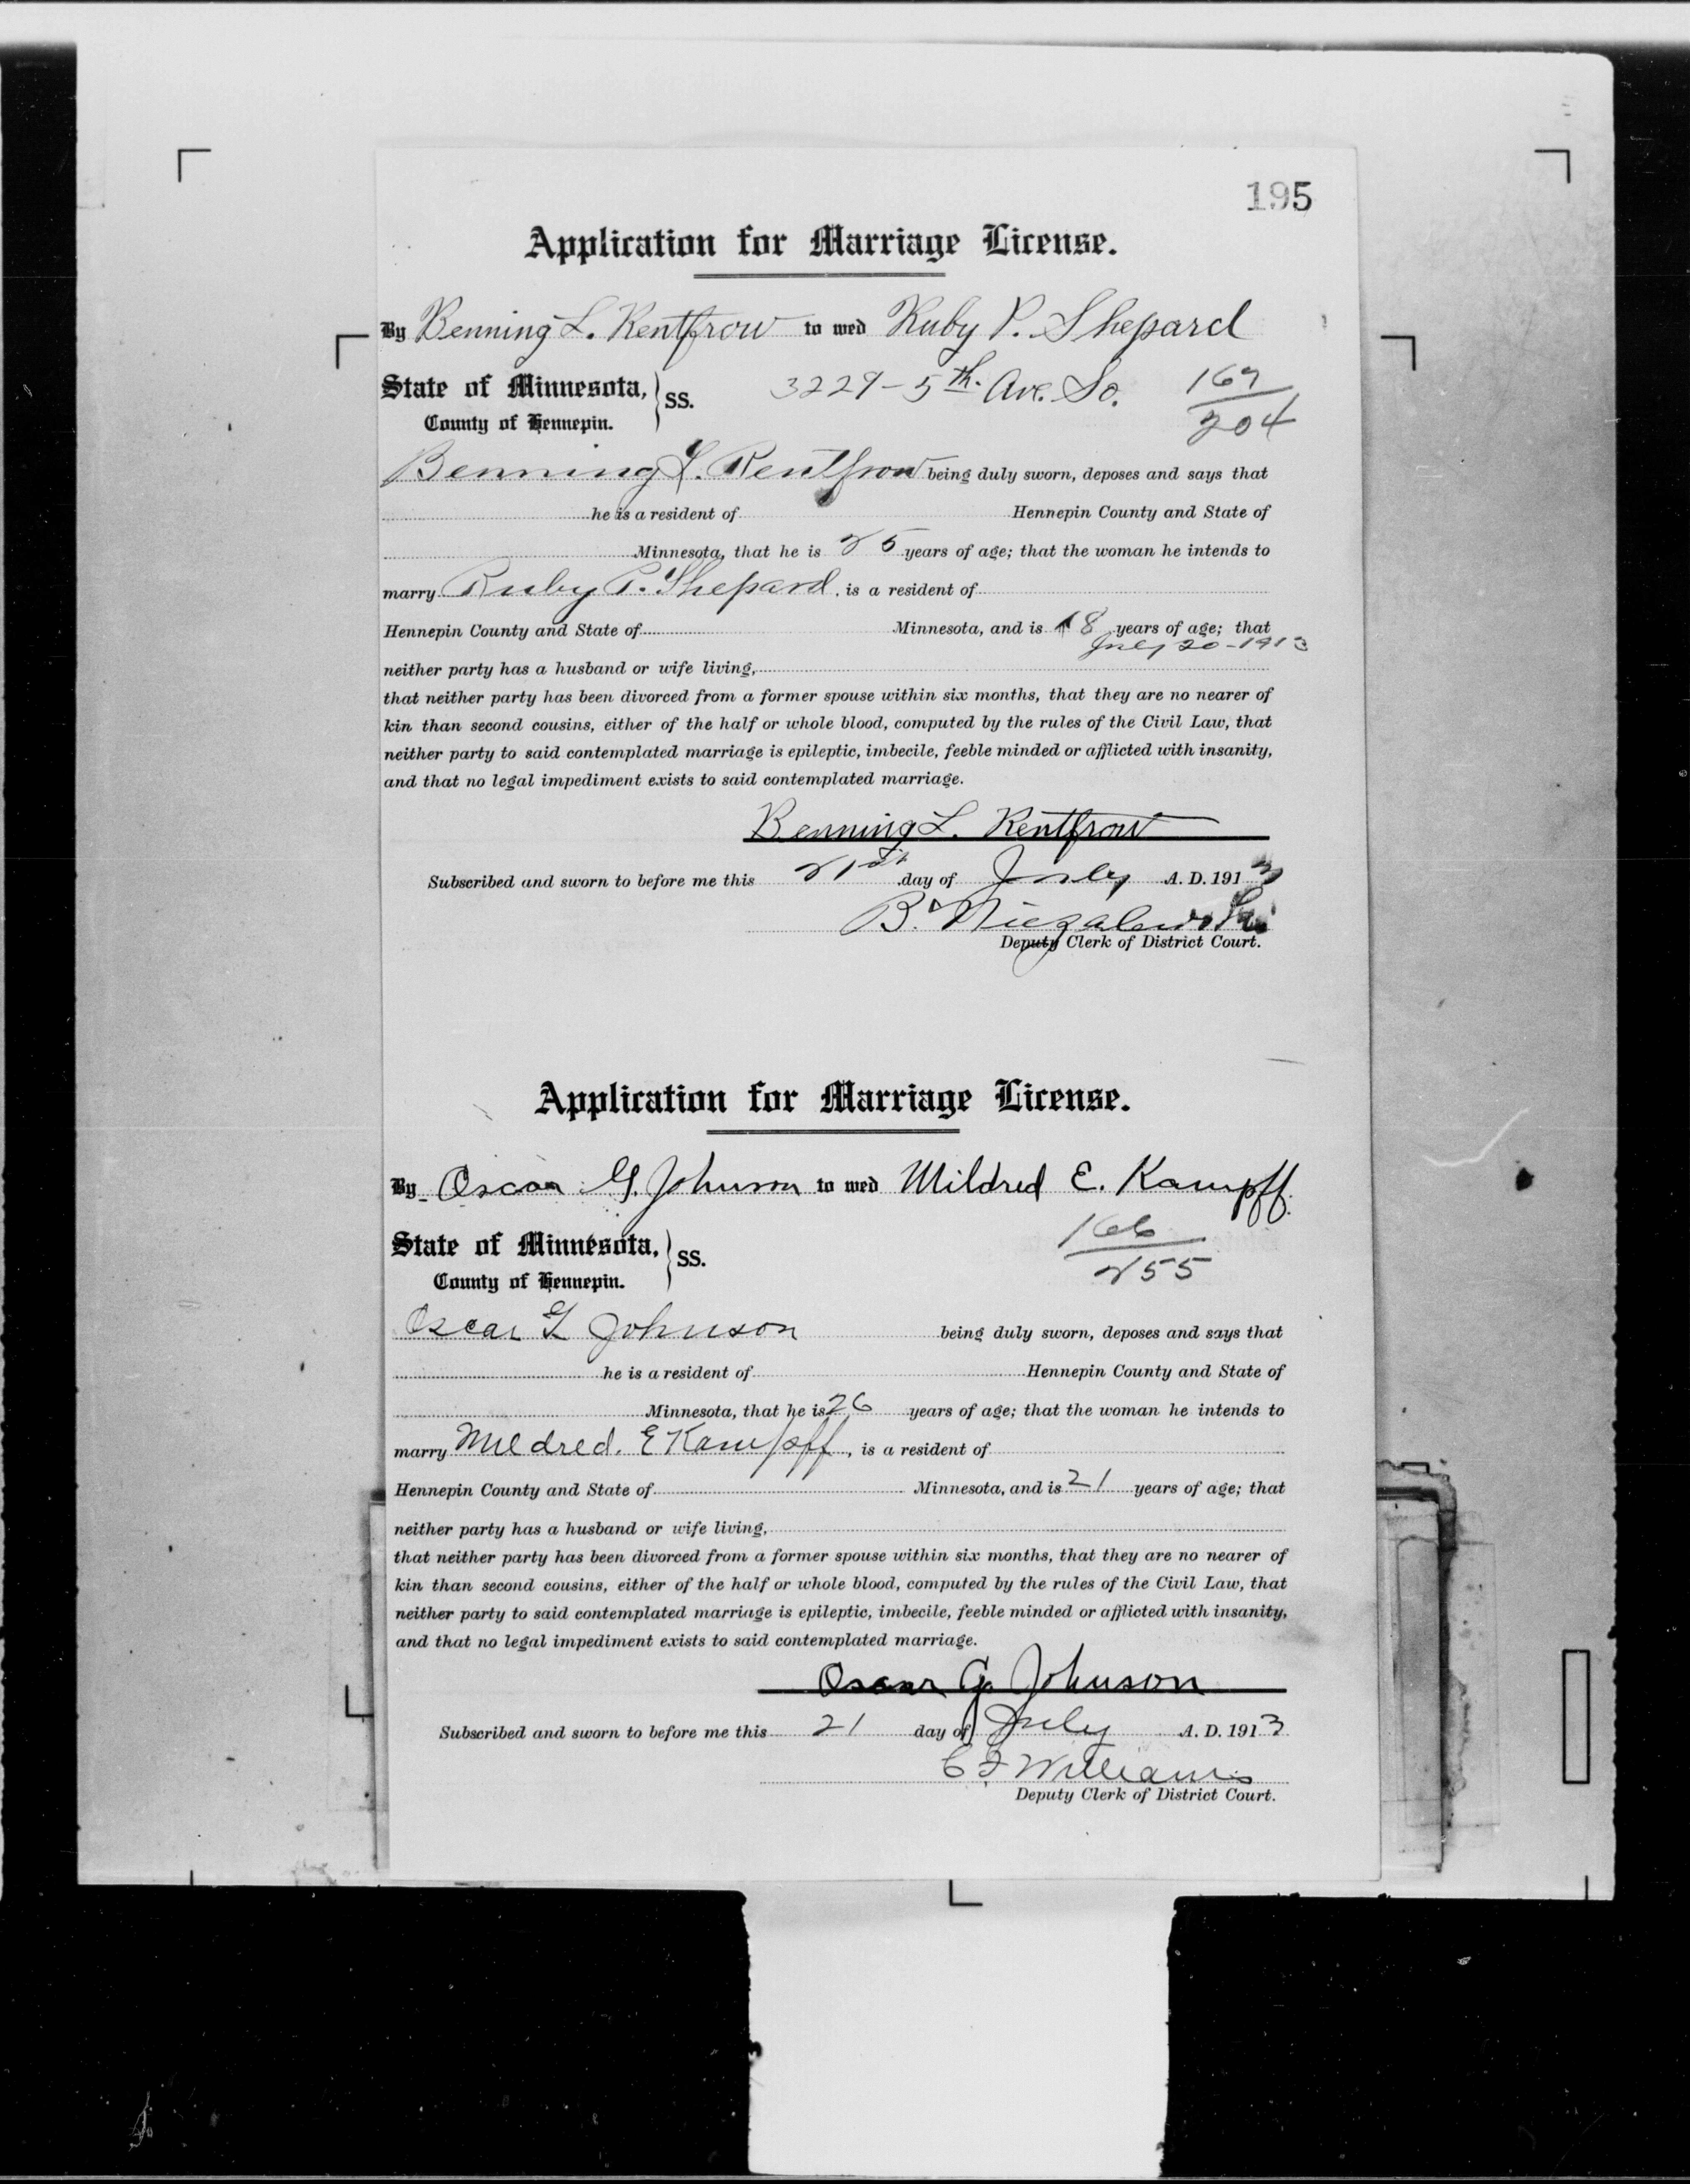 195
Application for Marriage License.
By Benning L. Rentfrow to wed Ruby P. Shepard
State of Minnesota, } SS. 3229-5th. Ave. So. 167
County of Hennepin. 204
Benning L. Rentfrow being duly sworn, deposes and says that
he is a resident of Hennepin County and State of
Minnesota, that he is 25 years of age; that the woman he intends to
marry Ruby P. Shepard, is a resident of
Hennepin County and State of Minnesota, and is 18 years of age; that
July 20-1913
neither party has a husband or wife living,
that neither party has been divorced from a former spouse within six months, that they are no nearer of
kin than second cousins, either of the half or whole blood, computed by the rules of the Civil Law, that
neither party to said contemplated marriage is epileptic, imbecile, feeble minded or afflicted with insanity,
and that no legal impediment exists to said contemplated marriage.
Benning L. Rentfrow
Subscribed and sworn to before me this 21st day of July A. D. 1913
B.
Deputy Clerk of District Court.
Application for Marriage License.
By Oscar G. Johnson to wed Mildred E. Kampff.
State of Minnesota, } SS. 166
County of Hennepin. 255
Oscar G Johnson being duly sworn, deposes and says that
he is a resident of Hennepin County and State of
Minnesota, that he is 26 years of age; that the woman he intends to
marry Mildred. E Kampff, is a resident of
Hennepin County and State of Minnesota, and is 21 years of age; that
neither party has a husband or wife living,
that neither party has been divorced from a former spouse within six months, that they are no nearer of
kin than second cousins, either of the half or whole blood, computed by the rules of the Civil Law, that
neither party to said contemplated marriage is epileptic, imbecile, feeble minded or afflicted with insanity,
and that no legal impediment exists to said contemplated marriage.
Oscar G. Johnson
Subscribed and sworn to before me this 21 day of July A. D. 1913
C F Williams
Deputy Clerk of District Court.